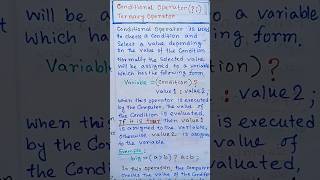 Conditional Operator(?:)
Ternary Operator
Conditional Operator is used
to check a Condition and
Select a Value depending
on the value of the Condition.
Normally the Selected value
will be assigned to a variable
which has the following form.
Variable = (Condition)?
value 1 : value 2;
When this operator is executed
by the Computer, the value of
the Condition is evaluated,
If it is true then value 1
is assigned to the variable,
Otherwise value 2 is assigned
to the variable.
Example:-
big = (a>b) ? a : b;
In this operator, the Computer
checks the value of the Condition